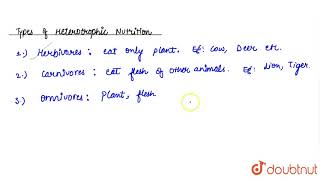 Types of Heterotrophic Nutrition
1.) Herbivores : eat only plant. Eg: Cow, Deer etc.
2.) Carnivores : eat flesh of other animals. Eg: Lion, Tiger.
3.) Omnivores : Plant, flesh
doubtnut